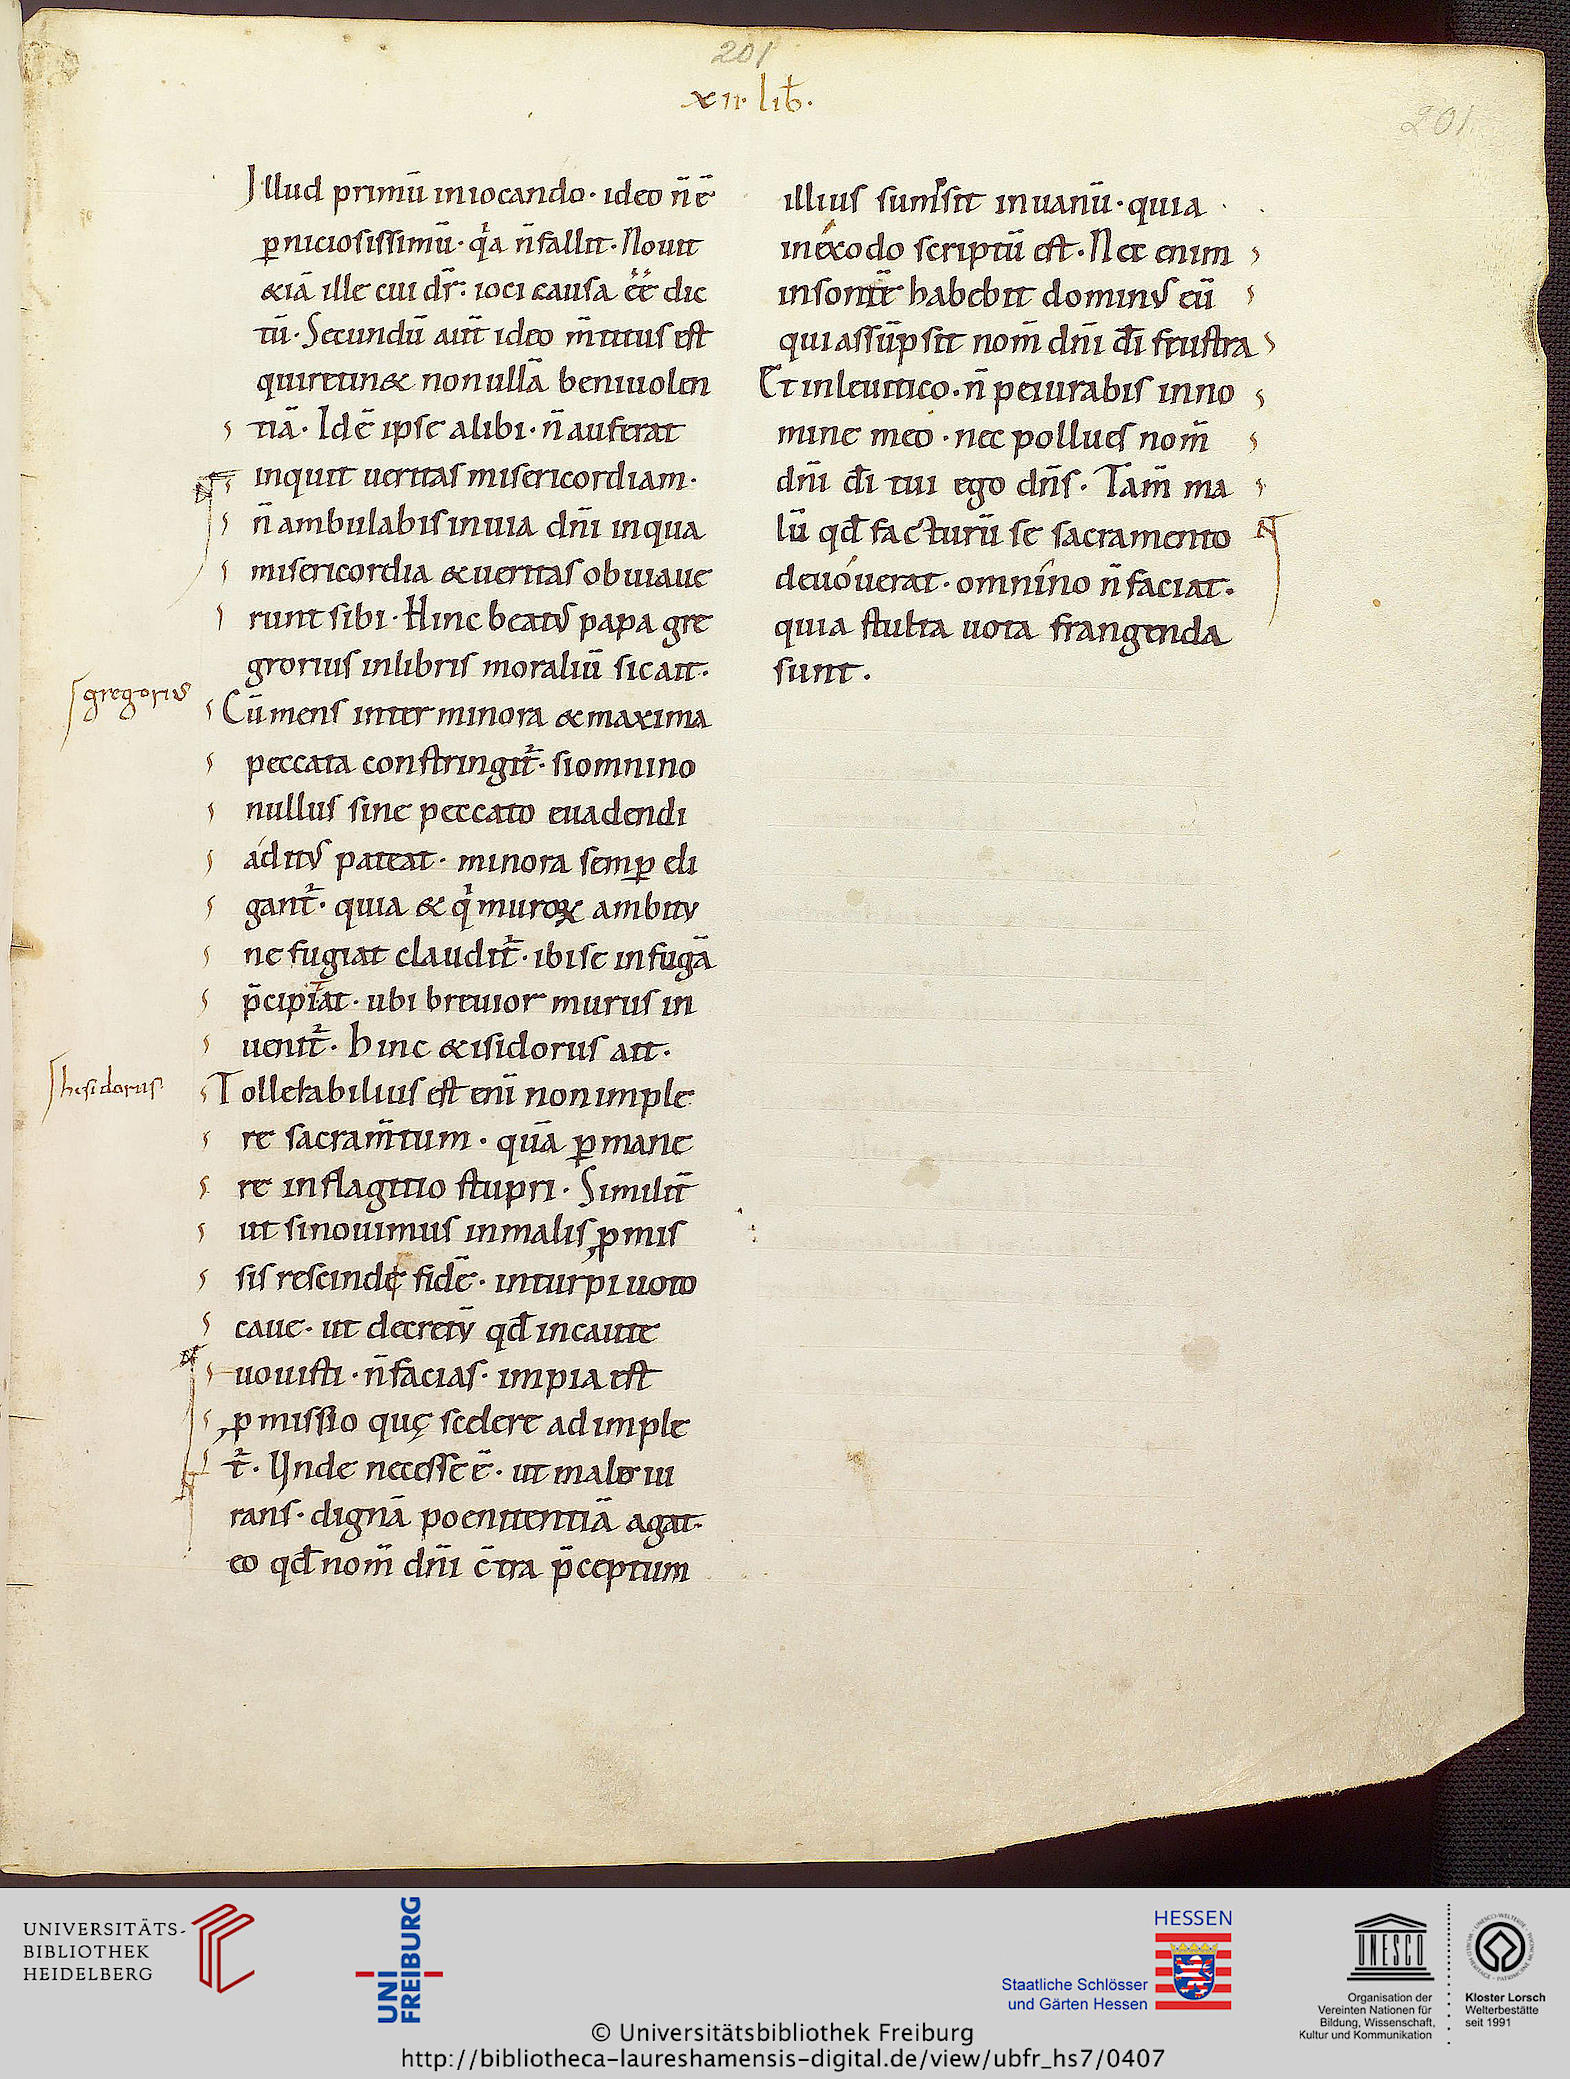 201
xii. lib̄.
201
Illud primū iniocando· ideo n̄ ē
ꝑniciosissimū· qͥa n̄ fallit· Nouit
&iā ille cui dr̄· ioci causa ēē dic
tū· Secundū aut̄ ideo m̄titus est
quiretin& nonullā beniuolen
tiā· Idē ipse alibi· n̄ auferat
inquit ueritas misericordiam·
n̄ ambulabis inuia dn̄i inqua
misericordia & ueritas obuiaue
runt sibi· Hinc beatus papa gre
grorius inlibris moraliū sic ait·
gregorius
Cū mens inter minora & maxima
peccata constringit᷑· siomnino
nullus sine peccato euadendi
aditus pateat· minora semꝑ eli
gant᷑· quia & qͥ muroꝝ ambitu
ne fugiat claudit᷑· ibi se infugā
p̄cipiat· ubi breuior murus in
uenit᷑· hinc & isidorus ait·
hesidorus
Tollerabilius est enī non imple
re sacram̄tum· quā ꝑmane
re inflagitio stupri· Similit̄
ut sinouimus inmalis ꝓmis
sis rescinde fidē· inturpi uoto
caue· ut decretū qd̄ incaute
uouisti· n̄ facias· impia est
ꝓmissio quę scelere adimple
t᷑· Unde necesse ē· ut male iu
rans· dignā poenitentiā agat·
eo qd̄ nom̄ dn̄i c̄tra p̄ceptum
illius sumsit inuanū· quia
inexodo scriptū est· Nec enim
insontē habebit dominus eū
qui assūpsit nom̄ dn̄i dī frustra
Et inleuitico· n̄ peiurabis inno
mine meo· nec pollues nom̄
dn̄i dī tui ego dn̄s· Tam̄ ma
lū qd̄ facturū se sacramento
deuouerat· omnino n̄ faciat·
quia stulta uota frangenda
sunt·
UNIVERSITÄTS-
BIBLIOTHEK
HEIDELBERG
UNI
FREIBURG
HESSEN
Staatliche Schlösser
und Gärten Hessen
UNESCO
Organisation der
Vereinten Nationen für
Bildung, Wissenschaft,
Kultur und Kommunikation
Kloster Lorsch
Welterbestätte
seit 1991
© Universitätsbibliothek Freiburg
http://bibliotheca-laureshamensis-digital.de/view/ubfr_hs7/0407